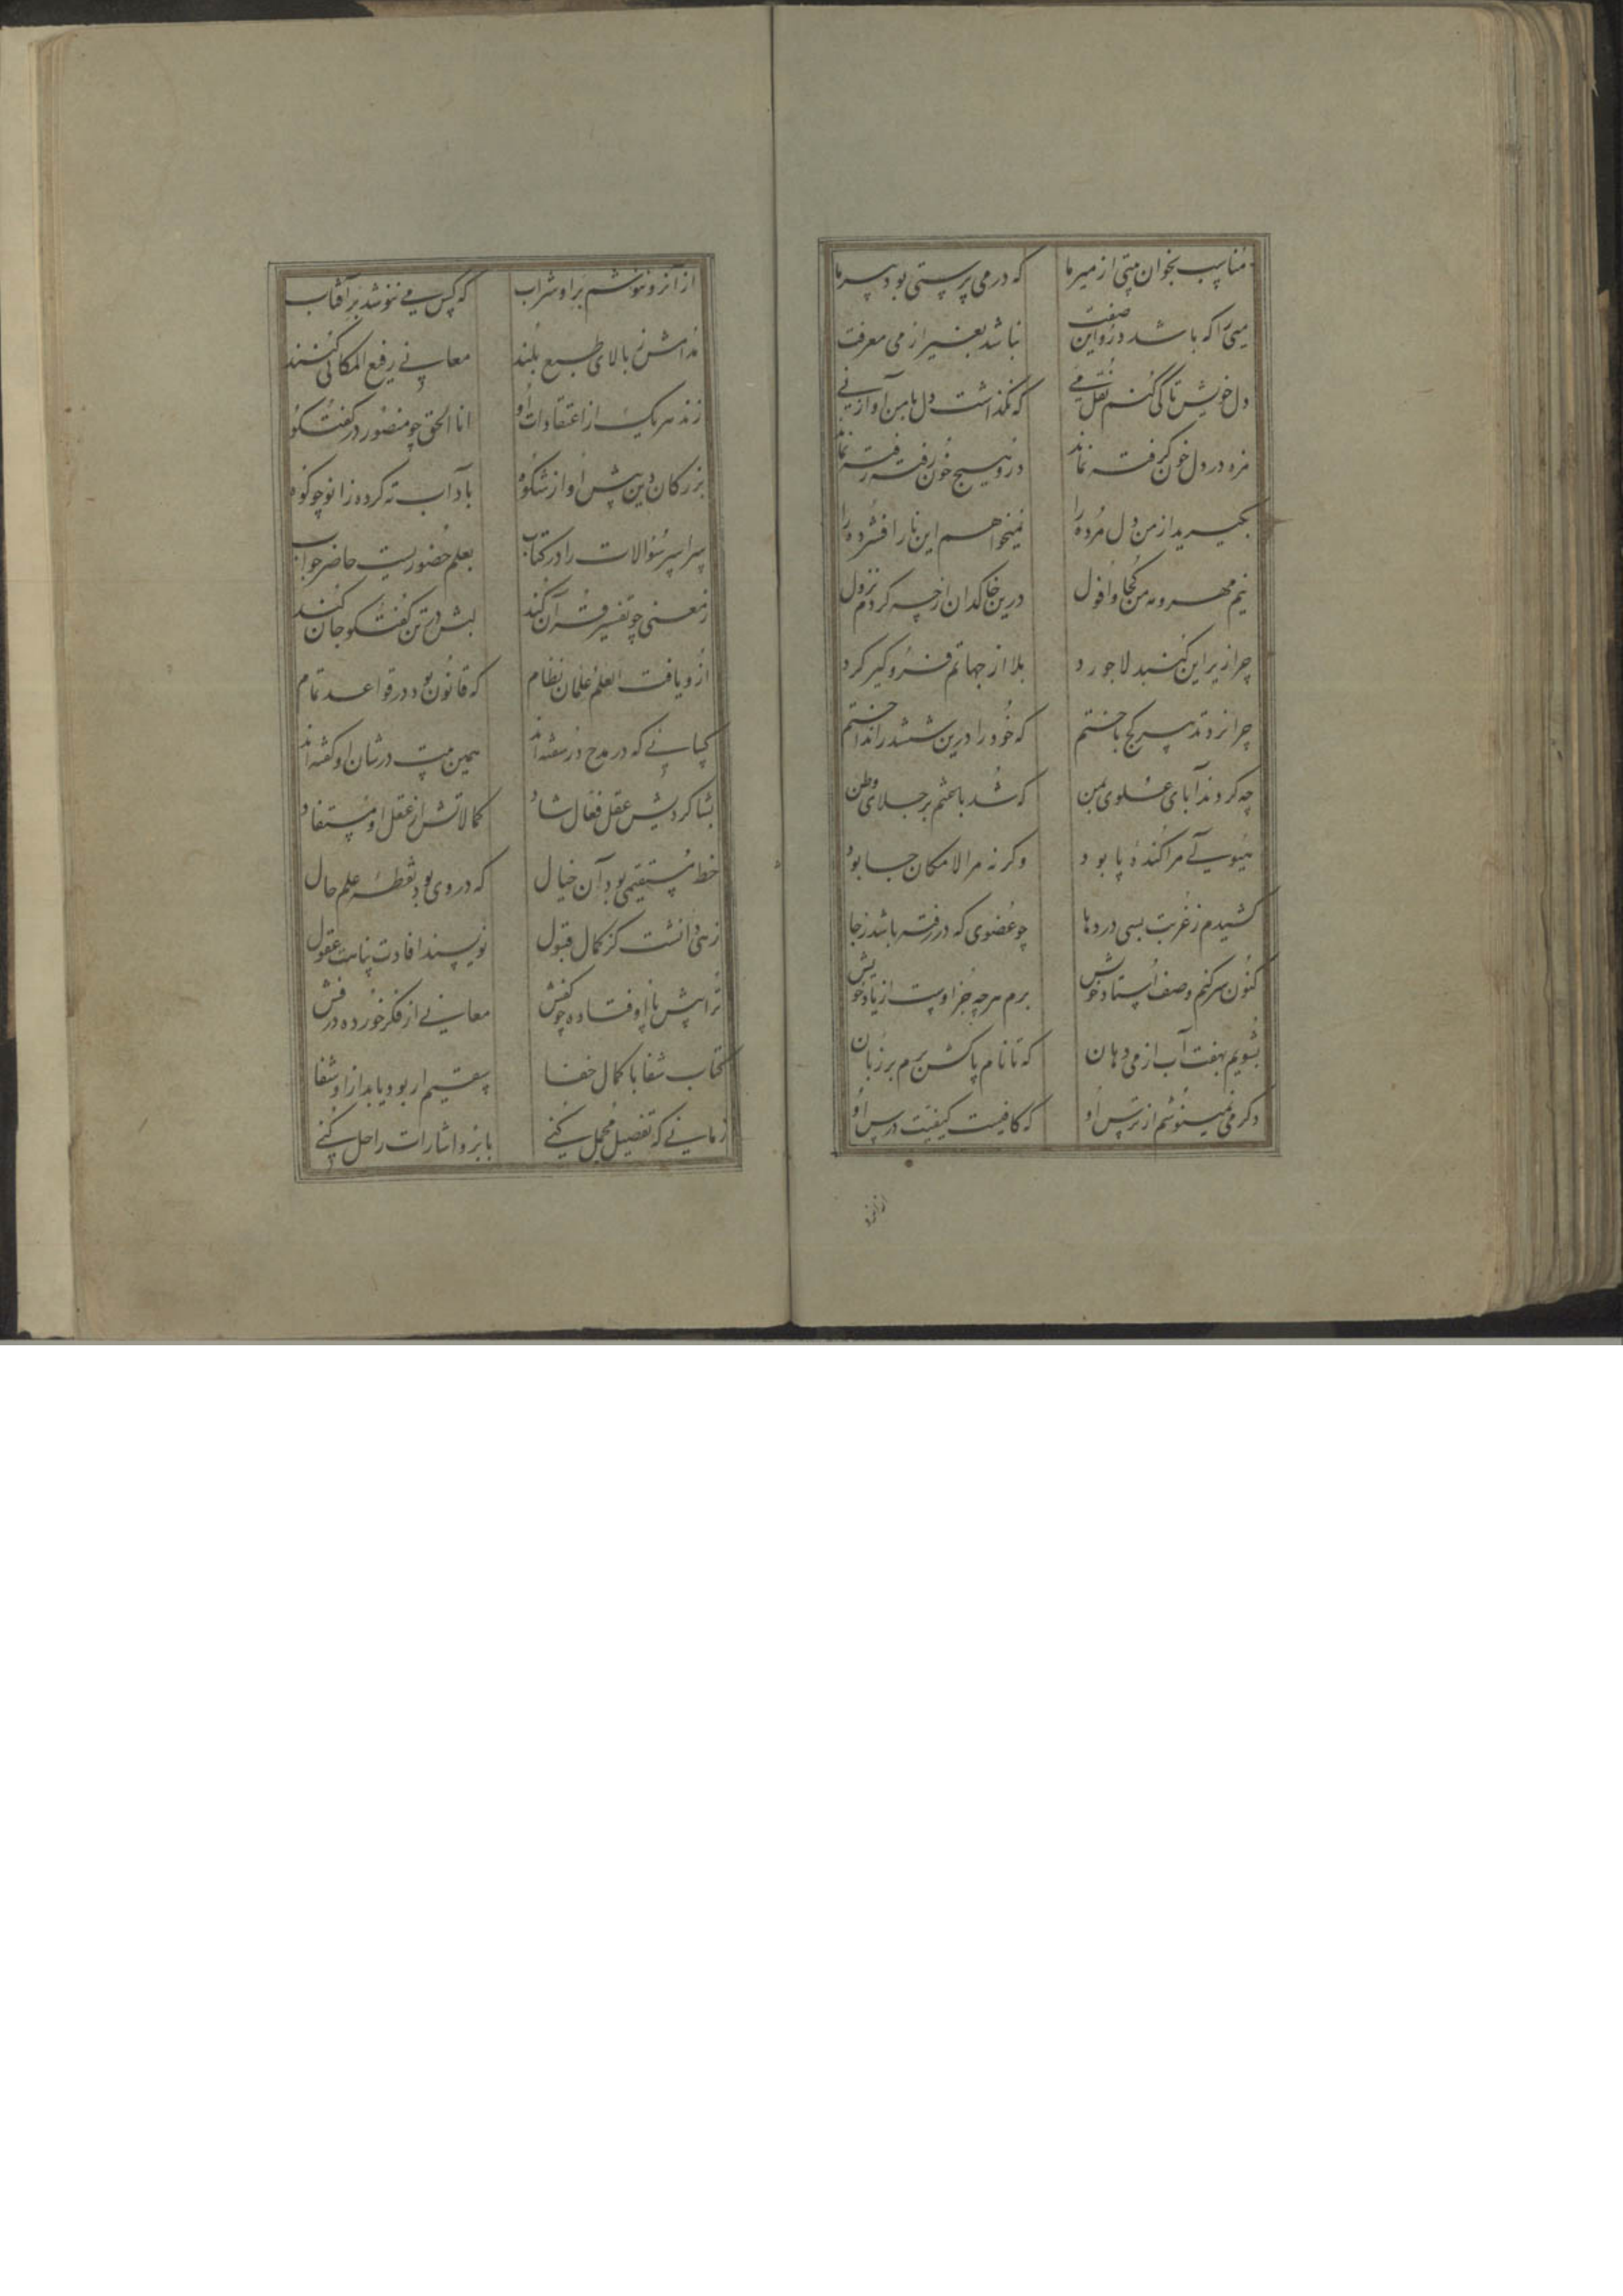 مناسب بخوان بیتی از میر ما که در می پرستی بود پیر ما
میی را که باشد درو این صفت نباشد بغیر از می معرفت
دل خویش تا کی کنم نقل می که نگذاشت دل با من آواز نی
مزه در دل خون گرفته نماند درو هیچ خون رفته رفته نماند
بگیرید از من دل مرده را نمیخواهم این نار افشرده را
نیم مهر و مه من کجا و افول درین خاکدان از چه کردم نزول
چرا زیر این گنبد لاجورد بلا از جهاتم فرو گیر کرد
چرا نرد تدبیر کج باختم که خود را درین ششدر انداختم
چه کردند آبای علوی بمن که شد باعثم بر جلای وطن
هیولی مرا کنده پا بود وگرنه مرا لامکان جا بود
کشیدم ز غربت بسی دردها چو عضوی که در رفته باشد ز جا
کنون سر کنم وصف استاد خویش برم هرچه جز اوست از یاد خویش
بشویم بهفت آب از می دهان که تا نام پاکش برم بر زبان
دگر می نمینوشم از ترس او که کافیست کیفیت درس او
از آنرو
از آنرو ننوشم بر او شراب که کس می ننوشد بر آفتاب
مدامش ز بالای طبع بلند معانی رفیع المکانی کنند
زند هر یک از اعتقادات او انا الحق چو منصور در گفتگو
بزرگان دین پیش او از شکوه بآداب ته کرده زانو چو کوه
سراسر سؤالات را در کتاب بعلم حضوریست حاضر جواب
ز معنی چو تفسیر قرآن کند بشر در تن گفتگو جان کند
ازو یافت العلم علمان نظام که قانون بود در قواعد تمام
کسانی که در مدح در سفته اند همین بیت در شان او گفته اند
بشاگردیش عقل فعال شاد کمالاتش از عقل او مستفاد
خط مستقیمی بود آن خیال که در وی بود نقطه علم حال
زهی دانشت کز کمال قبول نویسند افادت پناهت عقول
ترا پیش پا اوفتاده چو کفش معانی از فکر خورده درفش
کتاب شفا با کمال خفا سقیم ار بود یابد از او شفا
زمانی که تفصیل مجمل کنی بابرو اشارات را حل کنی